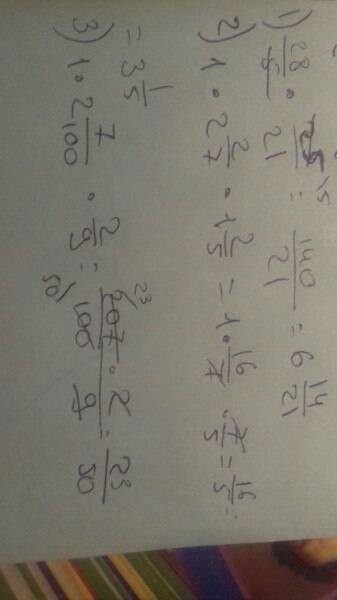 1) 28/5 · 15/21 = 140/21 = 6 14/21
2) 1 · 2 2/7 · 1 2/5 = 1 · 16/7 · 7/5 = 16/5 =
= 3 1/5
3) 1 · 2 7/100 · 2/9 = 207 · 2 / 100 · 9 = 23/50
23
50